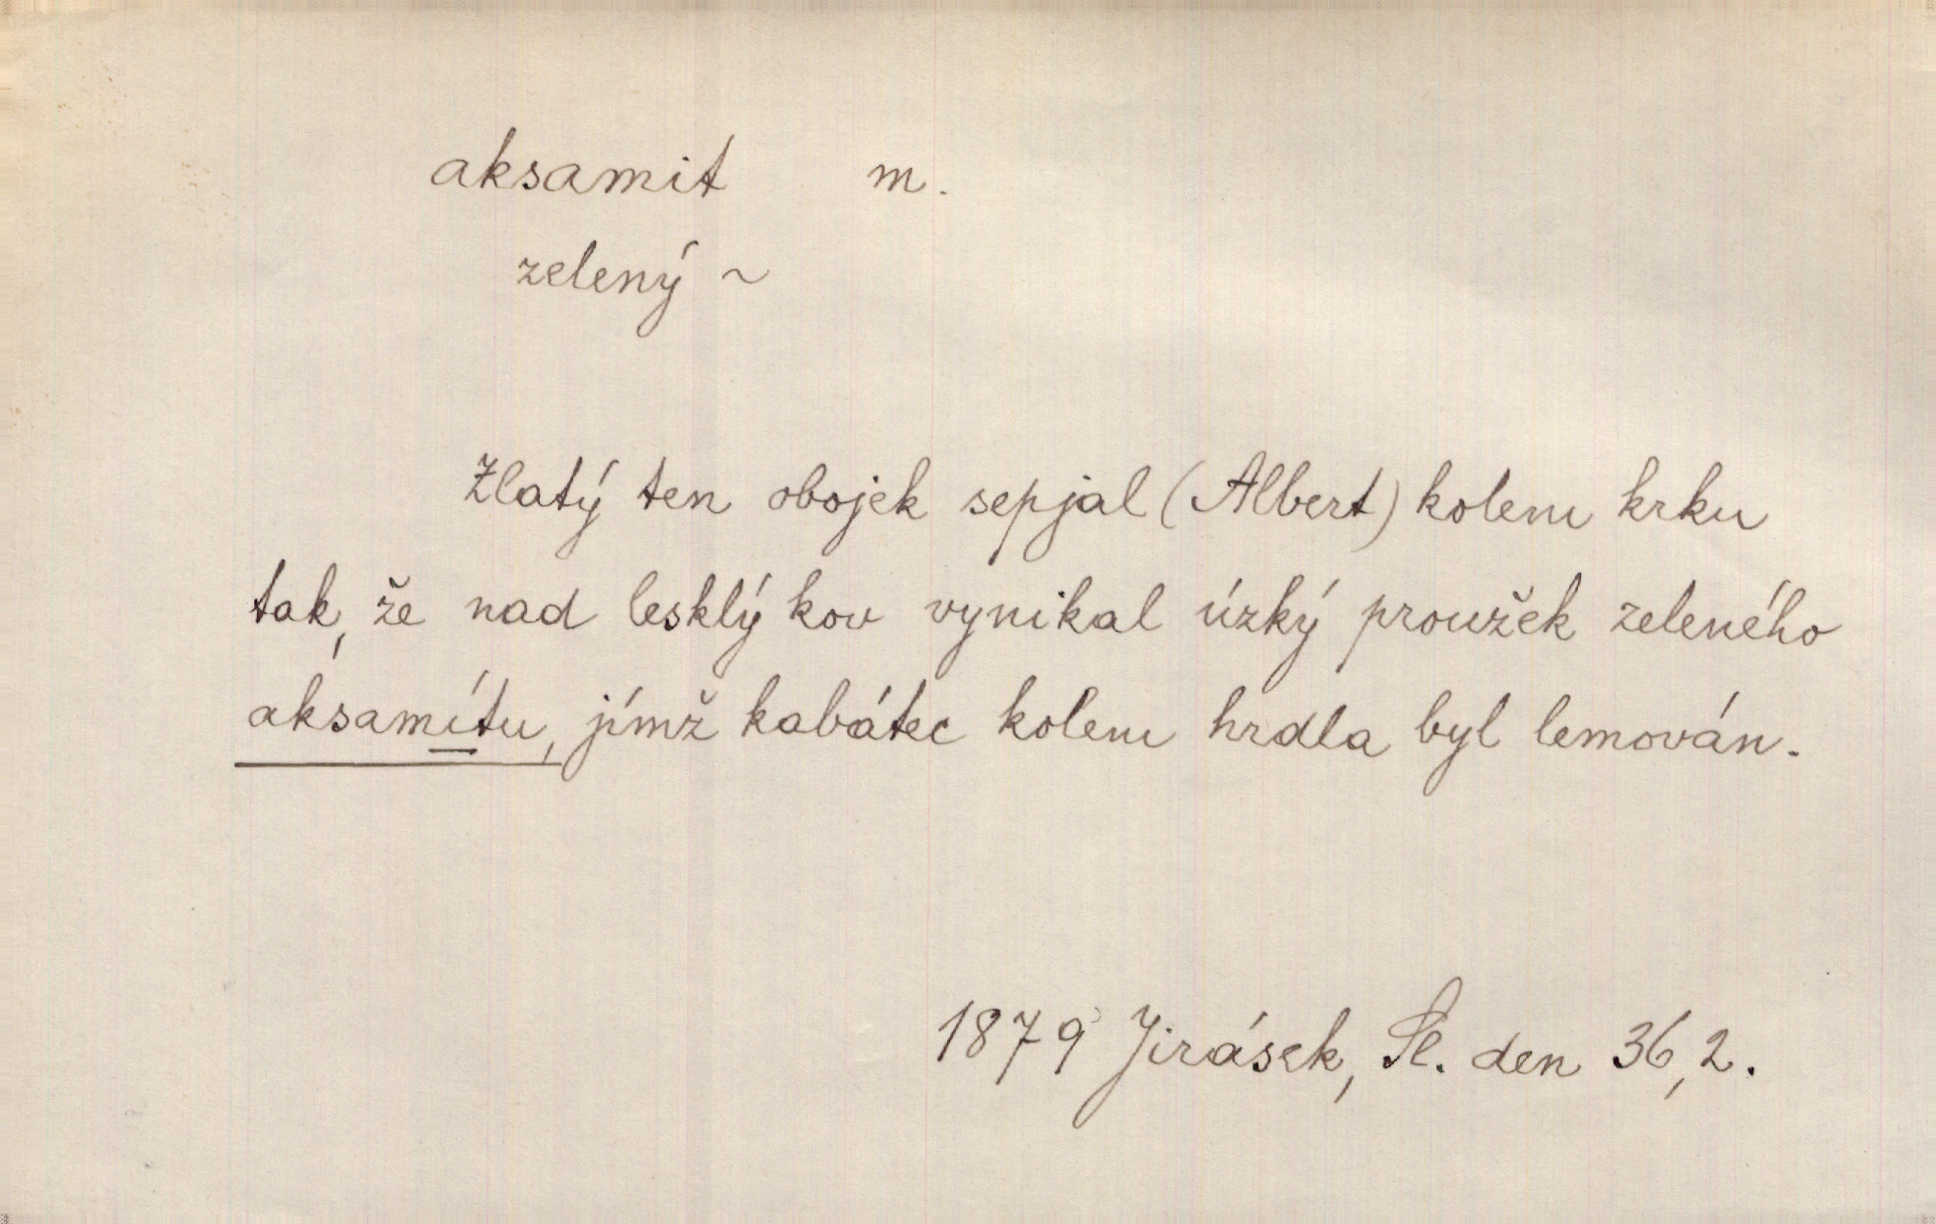 aksamit m.
zelený ~
Zlatý ten obojek sepjal (Albert) kolem krku
tak, že nad lesklý kov vynikal úzký proužek zeleného
aksamítu, jímž kabátec kolem hrdla byl lemován.
1879 Jirásek, Sl. den 36,2.